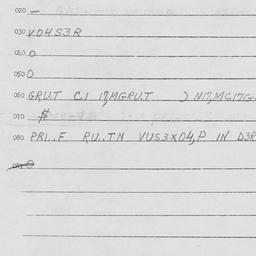 020 —
030 VD4S3R
040 0
050 0
060 GRUT CI 17,MGRUT ) N17,MC17G
070 $
080 PRI..F RU..TN VUS3X04,P IN D3R